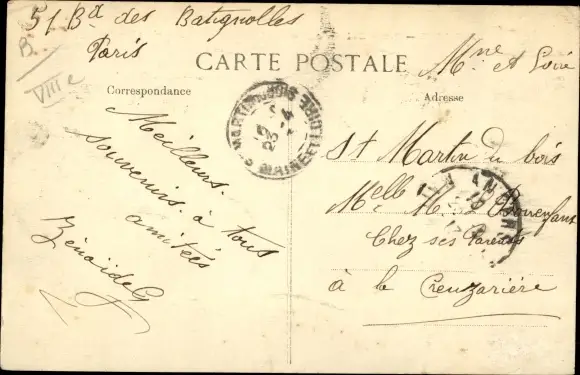 51 Bd des Batignolles
Paris
B.
VIIIe
CARTE POSTALE
Correspondance
Adresse
Meilleurs
souvenirs à tous
amitiés
Zénaïde G
Mne et Loire
St Martin du bois
Melle M. Bonenfant
Chez ses Parents
à la Creuzarière
ST MARTIN DU BOIS
MAINE ET LOIRE
23 -4
ANGERS